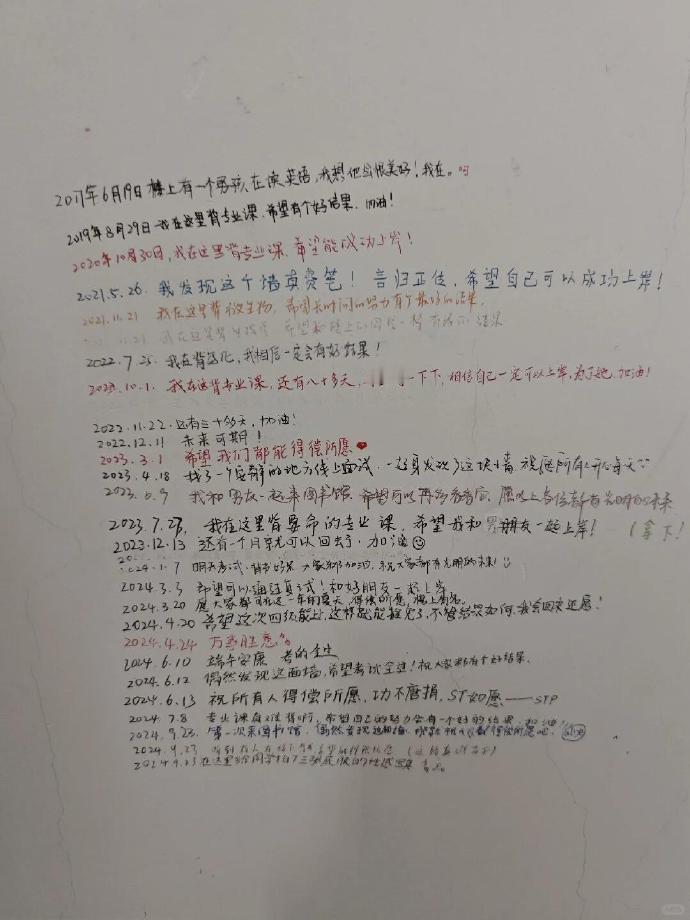 2017年6月19日 楼上有一个男孩,在读英语,我想他会很美好!我在。
2019年8月29日 我在这里背专业课,希望有个好结果,加油!
2020年10月30日,我在这里背专业课,希望能成功上岸!
2021.5.26. 我发现这个墙真费笔!言归正传,希望自己可以成功上岸!
2021.11.21 我在这里背微生物,希望长时间的努力有个最好的结果.
我在这里 希望和楼上 一样有好的结果
2022.7.25. 我在背 化,我相信一定会有好结果!
10.1. 我在这背专业课,还有八十多天, 一下下,相信自己一定可以上岸,为了她,加油!
2022.11.22.还有三十多天,加油!
2022.12.11 未来可期!
2023.3.1 希望我们都能得偿所愿❤
2023.4.18 找了一个安静的地方线上面试,一起身发现了这块墙,祝愿所有人开心每天
我和男友一起来图书馆,希望 愿以上各位都有光明的未来
2023.7.27, 我在这里背要命的专业课,希望我和男朋友一起上岸! (拿下!
2023.12.13 还有一个月就可以回去了,加油☺
2024.1.7 明天考试, 大家都加油,祝大家都有光明的未来!
2024.3.3 希望可以通过复试!和好朋友一起上岸
2024.3.20 愿大家都可在这一年的夏天,得偿所愿,榜上有名。
2024.4.20 希望这次四级能过,这样就能 了,不管结果如何,我会回来还愿!
2024.4.24 万事胜意。
2024.6.10 端午安康 考的全过
2024.6.12 偶然发现这面墙,希望考试全过!祝大家都有个好结果.
2024.6.13 祝所有人得偿所愿,功不唐捐,ST如愿——STP
2024.7.8 专业课 希望自己的努力会有一个好的结果 加油!
2024.9.23. 第一次来图书馆,偶然发现这面墙, 得偿所愿吧!
2024.9.23
在这里 同学